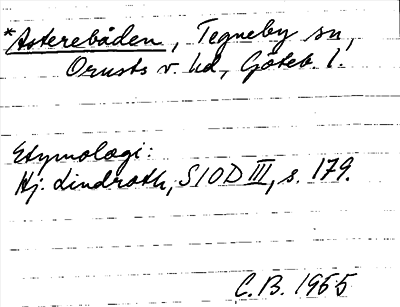 *Asterebåden, Tegneby sn,
Orusts v. hd, Göteb. l.
Etymologi:
Hj. Lindroth, SIOD III, s. 179.
C.B. 1955